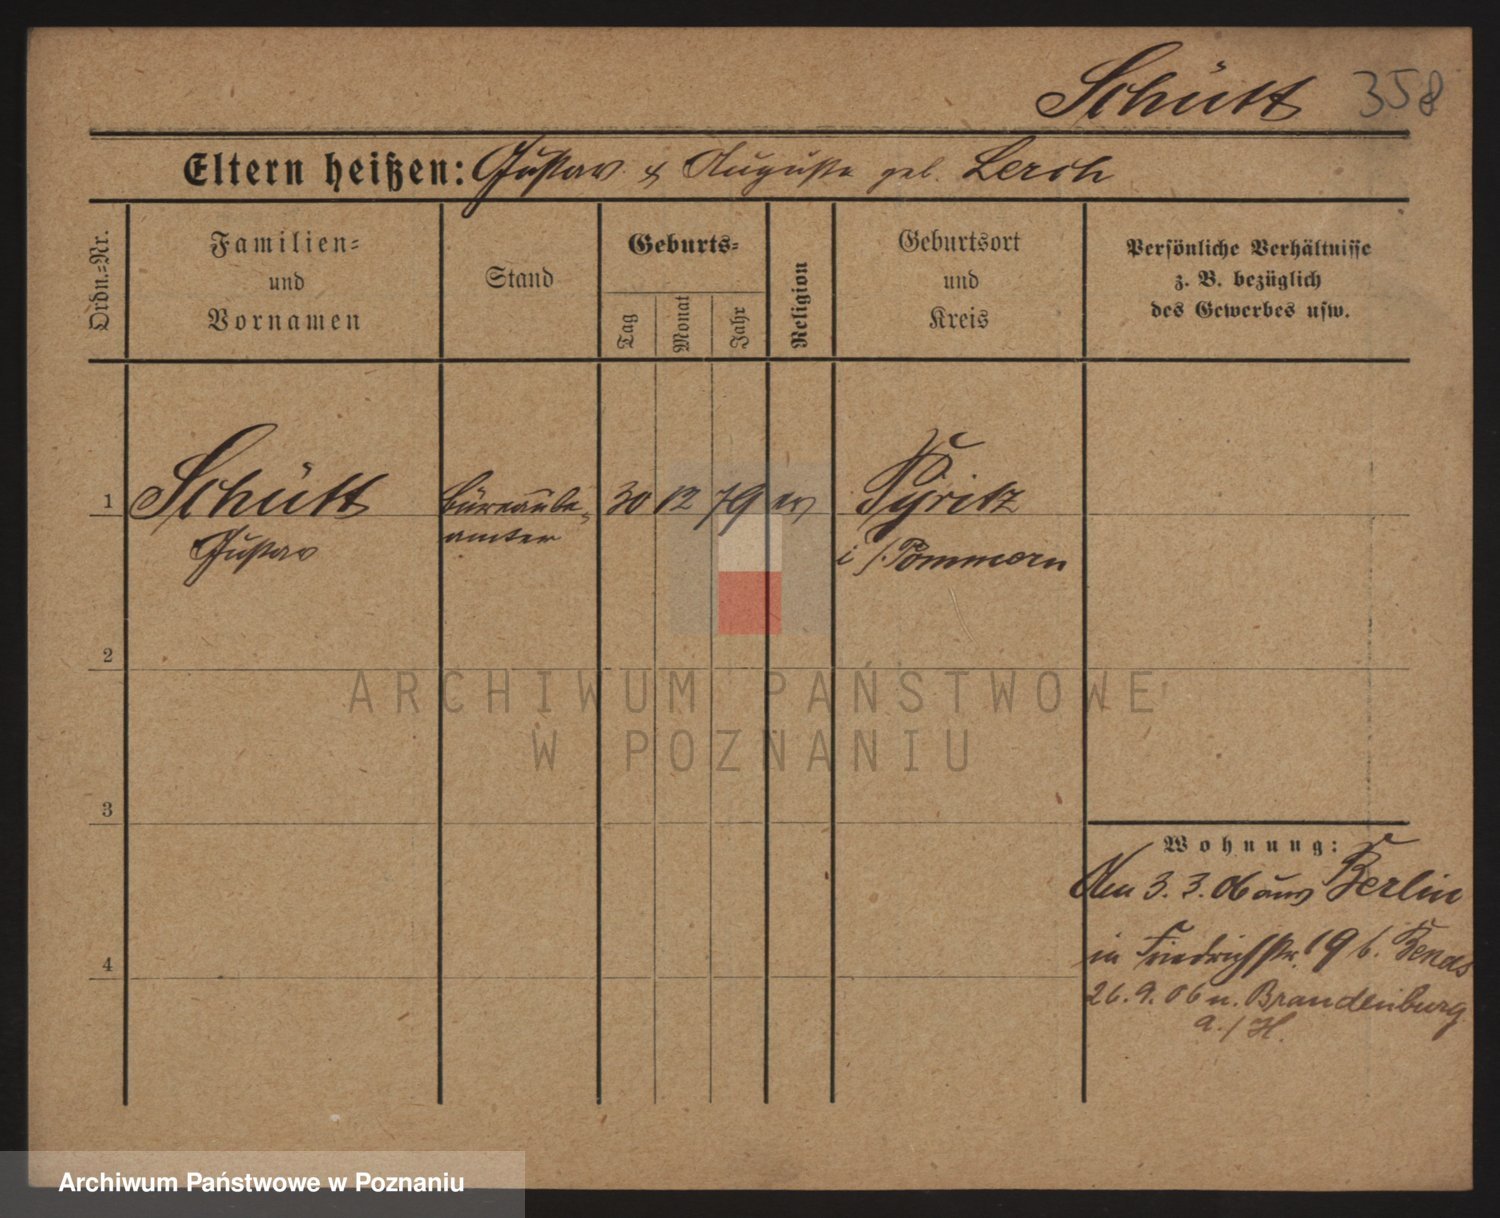 Schütt 358
Eltern heißen: Gustav & Auguste geb. Lerch
Ordn.-Nr.
Familien-
und
Vornamen
Stand
Geburts-
Tag
Monat
Jahr
Religion
Geburtsort
und
Kreis
Persönliche Verhältnisse
z. B. bezüglich
des Gewerbes usw.
1 Schütt Büreaube- 30 12 79 ev Pyritz
Gustav amter i/Pommern
2
ARCHIWUM PAŃSTWOWE
W POZNANIU
3
Wohnung:
Am 3. 3. 06 aus Berlin
4
in Friedrichstr. 19 b.
26. 9. 06 n. Brandenburg
a./H.
Archiwum Państwowe w Poznaniu